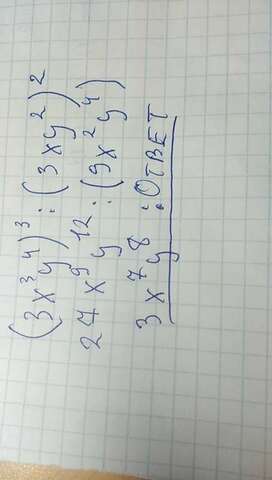 (3x³y⁴)³ : (3xy²)²
27x⁹y¹² : (9x²y⁴)
3x⁷y⁸ : ОТВЕТ